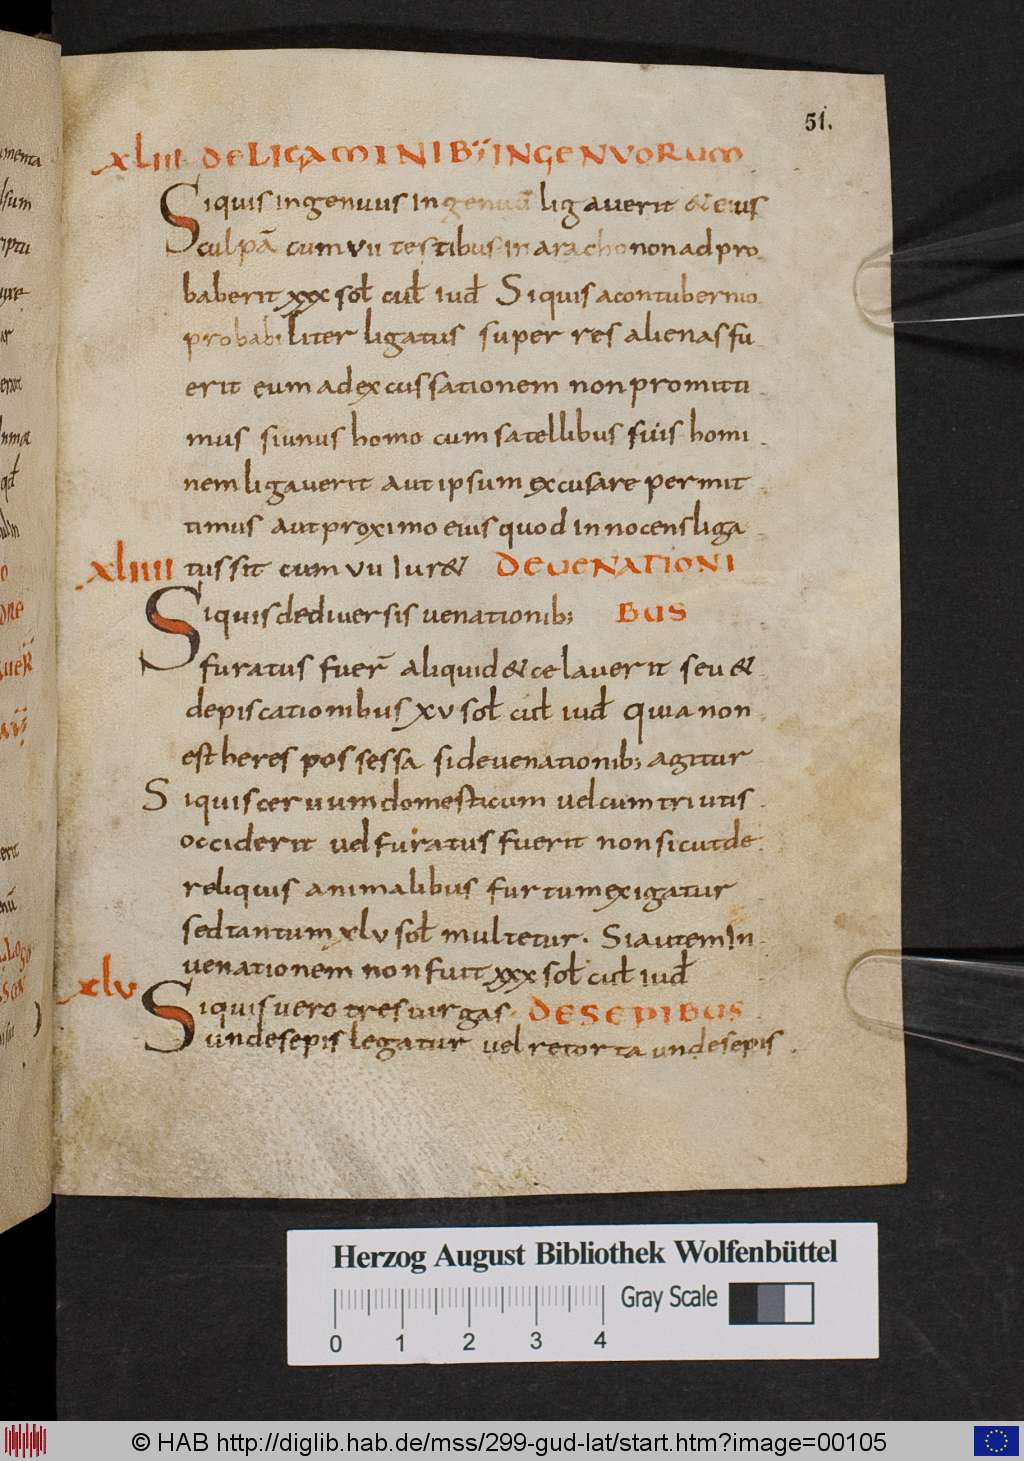 51.
xliii DE LIGAMINIB; INGENVORUM
Siquis ingenuus ingenuū ligaverit & eius
culpā cum vii testibus in aracho non adpro
baberit xxx sol cul iud Siquis acontubernio
probabiliter ligatus super res alienas fu
erit eum ad excussationem non promitti
mus si unus homo cum satellibus suis homi
nem ligaverit aut ipsum excusare permit
timus aut proximo eius quod innocens liga
xliiii tus sit cum vii Iur& DE VENATIONI
Siquis de diversis venationib; BUS
furatus fuer̄ aliquid & celaverit seu &
de piscationibus xv sol cul iud quia non
est heres possessa si de venationib; agitur
Siquis cervum domesticum vel cum triutis
occiderit vel furatus fuerit non sicut de
reliquis animalibus furtum exigatur
sed tantum xlv sol multetur. Si autem In
venationem non fuit xxx sol cul iud
xlv Siquis vero tres virgas. DE SEPIBUS
unde sepis legatur vel retorta unde sepis
Herzog August Bibliothek Wolfenbüttel
0 1 2 3 4 Gray Scale
© HAB http://diglib.hab.de/mss/299-gud-lat/start.htm?image=00105